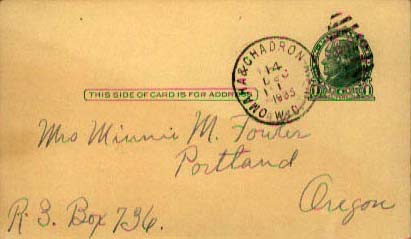 OMAHA & CHADRON
14
DEC
1935
W.D.
THIS SIDE OF CARD IS FOR ADDRESS
Mrs Minnie M. Fowler
Portland
Oregon
R. 3. Box 736.